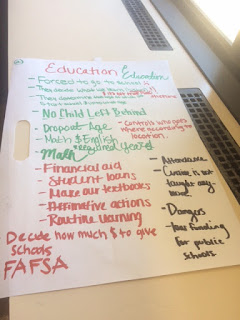 Education Education
- Forced to go to school
- They decide what we learn
- No Child Left Behind
- Dropout Age
- Controls who goes where according to location.
- Math & English
*Required years!
Math
- Financial aid
- Student loans
- Make our textbooks
- Affirmative actions
- Routine learning
Decide how much $ to give
schools
FAFSA
- Attendance
- Cursive is not
taught any
more!
- Dangers
- Less funding
for public
schools